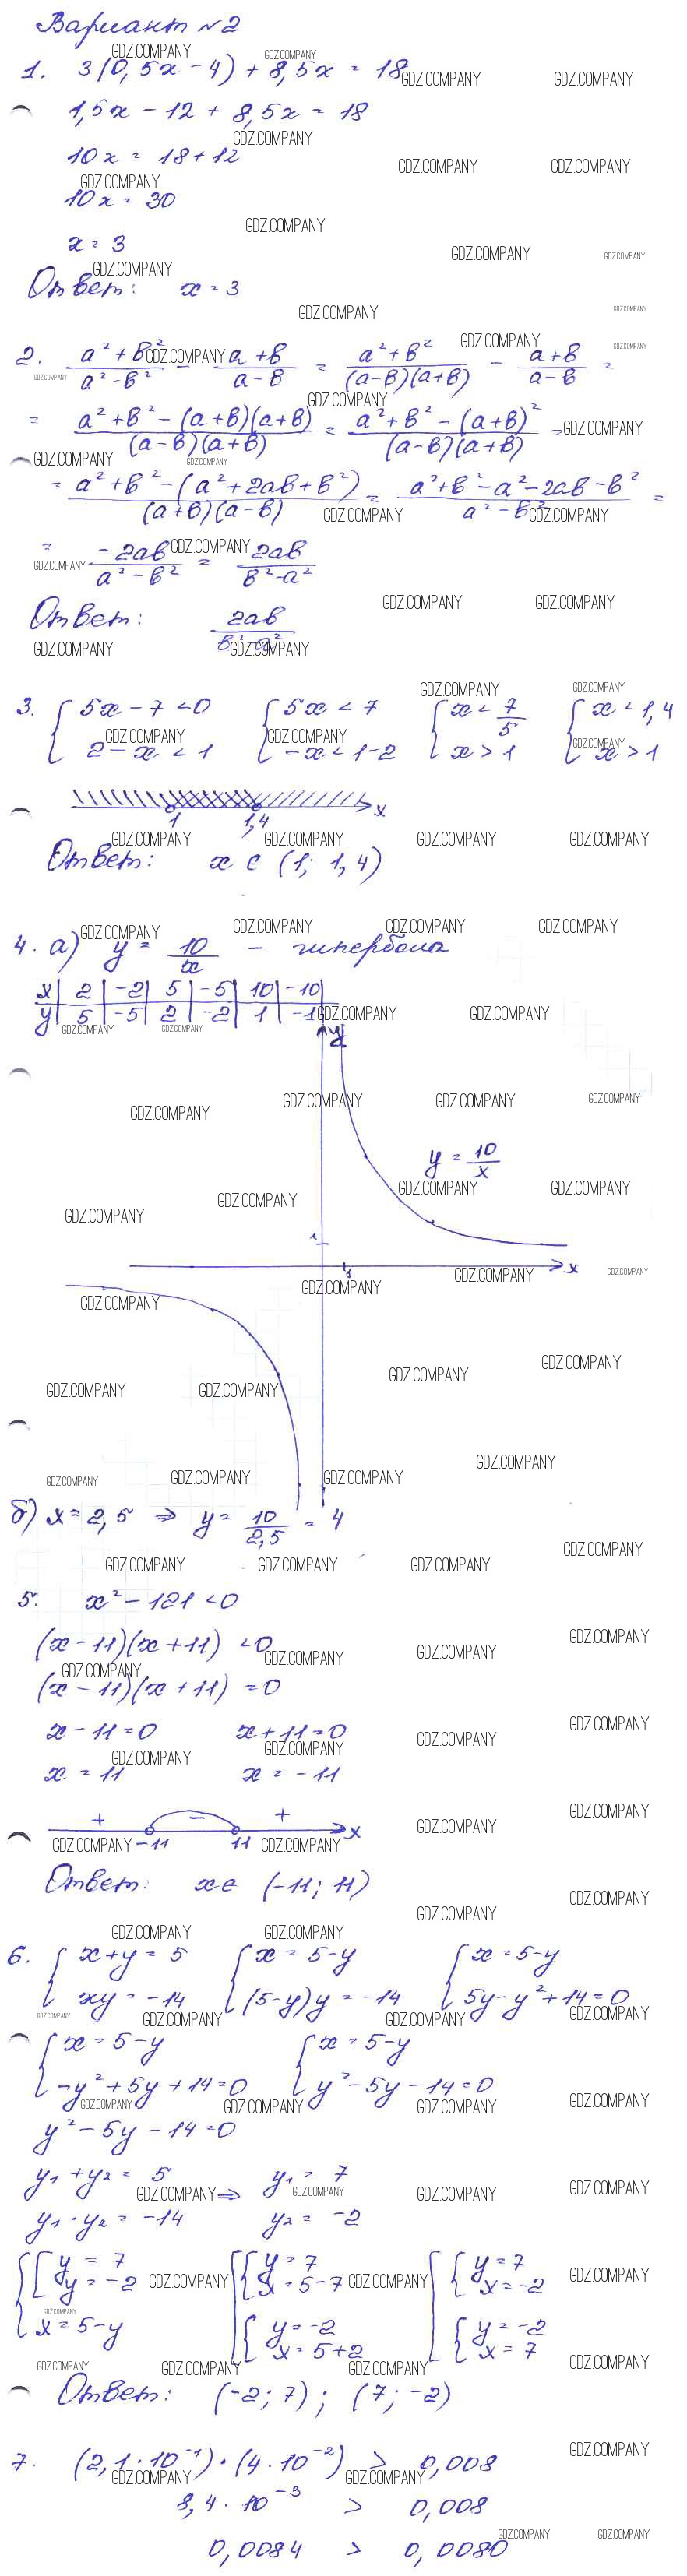 Вариант №2
1. 3(0,5x - 4) + 8,5x = 18
1,5x - 12 + 8,5x = 18
10x = 18 + 12
10x = 30
x = 3
Ответ: x = 3
2. (a² + b²)/(a² - b²) - (a + b)/(a - b) = (a² + b²)/((a - b)(a + b)) - (a + b)/(a - b) =
= (a² + b² - (a + b)(a + b))/((a - b)(a + b)) = (a² + b² - (a + b)²)/((a - b)(a + b)) =
= (a² + b² - (a² + 2ab + b²))/((a + b)(a - b)) = (a² + b² - a² - 2ab - b²)/(a² - b²) =
= (-2ab)/(a² - b²) = 2ab/(b² - a²)
Ответ: 2ab/(b² - a²)
3. { 5x - 7 < 0 { 5x < 7 { x < 7/5 { x < 1,4
2 - x < 1 -x < 1 - 2 x > 1 x > 1
1 1,4 x
Ответ: x ∈ (1; 1,4)
4. а) y = 10/x - гипербола
x | 2 | -2 | 5 | -5 | 10 | -10
y | 5 | -5 | 2 | -2 | 1 | -1
y
y = 10/x
1
1 x
б) x = 2,5 ⇒ y = 10/2,5 = 4
5. x² - 121 < 0
(x - 11)(x + 11) < 0
(x - 11)(x + 11) = 0
x - 11 = 0 x + 11 = 0
x = 11 x = -11
+ - +
-11 11 x
Ответ: x ∈ (-11; 11)
6. { x + y = 5 { x = 5 - y { x = 5 - y
xy = -14 (5 - y)y = -14 5y - y² + 14 = 0
{ x = 5 - y { x = 5 - y
-y² + 5y + 14 = 0 y² - 5y - 14 = 0
y² - 5y - 14 = 0
y₁ + y₂ = 5 ⇒ y₁ = 7
y₁ · y₂ = -14 y₂ = -2
{ [ y = 7 [ { y = 7 [ { y = 7
y = -2 x = 5 - 7 x = -2
x = 5 - y { y = -2 { y = -2
x = 5 + 2 x = 7
Ответ: (-2; 7); (7; -2)
7. (2,1 · 10⁻¹) · (4 · 10⁻²) > 0,008
8,4 · 10⁻³ > 0,008
0,0084 > 0,0080
GDZ.COMPANY